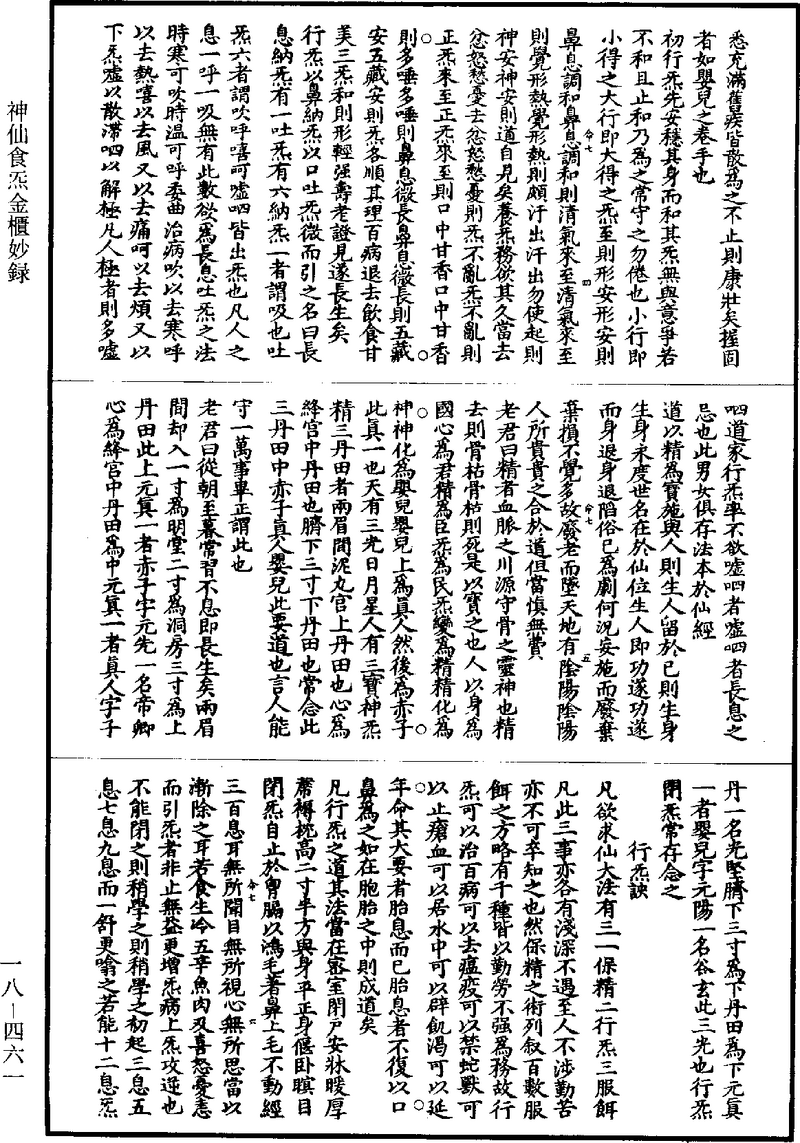 悉充滿舊疾皆散為之不止則康壯矣握固
者如嬰兒之卷手也
初行炁先安穩其身而和其炁無與意爭若
不和且止和乃為之常守之勿倦也小行即
小得之大行即大得之炁至則形安形安則
鼻息調和鼻息調和則清氣來至清氣來至
則覺形熱覺形熱則頗汗出汗出勿使起則
神安神安則道自見矣養炁務欲其久當去
忿怒愁憂去忿怒愁憂則炁不亂炁不亂則
正炁來至正炁來至則口中甘香口中甘香
則多唾多唾則鼻息微長鼻息微長則五藏
安五藏安則炁各順其理百病退去飲食甘
美三炁和則形輕強壽老證見遂長生矣
行炁以鼻納炁以口吐炁微而引之名曰長
息納炁有一吐炁有六納炁一者謂吸也吐
炁六者謂吹呼嘻呵噓呬皆出炁也凡人之
息一呼一吸無有此數欲為長息吐炁之法
時寒可吹時溫可呼委曲治病吹以去寒呼
以去熱嘻以去風又以去痛呵以去煩又以
下炁噓以散滯呬以解極凡人極者則多噓
呬道家行炁率不欲噓呬者噓呬者長息之
忌也此男女俱存法本於仙經
道以精為寶施與人則生人留於己則生身
生身永度世名在於仙位生人即功遂功遂
而身退身退陷俗已為劇何況妄施而廢棄
棄損不覺多故廢老而墜天地有陰陽陰陽
人所貴貴之合於道但當慎無費
老君曰精者血脈之川源守骨之靈神也精
去則骨枯骨枯則死是以寶之也人以身為
國心為君精為臣炁為民炁變為精精化為
神神化為嬰兒嬰兒上為真人然後為赤子
此真一也天有三光日月星人有三寶神炁
精三丹田者兩眉間泥丸宮上丹田也心為
絳宮中丹田也臍下三寸下丹田也常念此
三丹田中赤子真人嬰兒此要道也言人能
守一萬事畢正謂此也
老君曰從朝至暮常習不息即長生矣兩眉
間却入一寸為明堂二寸為洞房三寸為上
丹田此上元真一者赤子字元先一名帝卿
心為絳宮中丹田為中元真一者真人字子
丹一名光堅臍下三寸為下丹田為下元真
一者嬰兒字元陽一名谷玄此三光也行炁
閉炁常存念之
行炁訣
凡欲求仙大法有三一保精二行炁三服餌
凡此三事亦各有淺深不遇至人不涉勤苦
亦不可卒知之也然保精之術列叙百數服
餌之方略有千種皆以勤勞不強為務故行
炁可以治百病可以去瘟疫可以禁蛇獸可
以止瘡血可以居水中可以辟飢渴可以延
年命其大要者胎息而已胎息者不復以口
鼻為之如在胞胎之中則成道矣
凡行炁之道其法當在密室閉戶安牀暖厚
席褥枕高二寸半方與身平正身偃卧瞑目
閉炁自止於胷膈以鴻毛著鼻上毛不動經
三百息耳無所聞目無所視心無所思當以
漸除之耳若食生冷五辛魚肉及喜怒憂恚
而引炁者非止無益更增炁病上炁攻逆也
不能閉之則稍學之則稍學之初起三息五
息七息九息而一舒更噏之若能十二息炁
神仙食炁金櫃妙録
一八—四六一